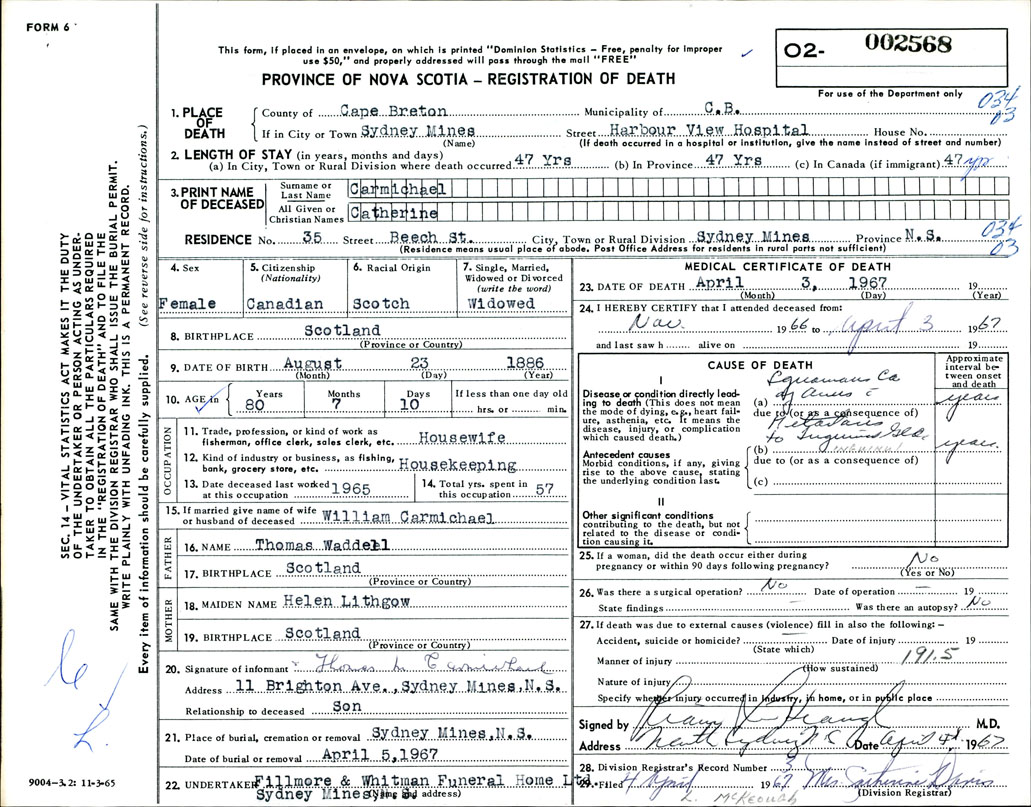 FORM 6
This form, if placed in an envelope, on which is printed "Dominion Statistics – Free, penalty for improper
use $50," and properly addressed will pass through the mail "FREE"
PROVINCE OF NOVA SCOTIA – REGISTRATION OF DEATH
O2- 002568
For use of the Department only
034
03
1. PLACE OF DEATH
County of Cape Breton Municipality of C.B.
If in City or Town Sydney Mines Street Harbour View Hospital House No.
(Name) (If death occurred in a hospital or institution, give the name instead of street and number)
2. LENGTH OF STAY (in years, months and days)
(a) In City, Town or Rural Division where death occurred 47 Yrs (b) In Province 47 Yrs (c) In Canada (if immigrant) 47 yrs
3. PRINT NAME OF DECEASED
Surname or Last Name Carmichael
All Given or Christian Names Catherine
RESIDENCE No. 35 Street Beech St. City, Town or Rural Division Sydney Mines Province N.S.
(Residence means usual place of abode. Post Office Address for residents in rural parts not sufficient)
034
03
4. Sex Female
5. Citizenship (Nationality) Canadian
6. Racial Origin Scotch
7. Single, Married, Widowed or Divorced (write the word) Widowed
8. BIRTHPLACE Scotland
(Province or Country)
9. DATE OF BIRTH August 23 1886
(Month) (Day) (Year)
10. AGE in Years 80 Months 7 Days 10 If less than one day old
hrs. or min.
OCCUPATION
11. Trade, profession, or kind of work as
fisherman, office clerk, sales clerk, etc. Housewife
12. Kind of industry or business, as fishing,
bank, grocery store, etc. Housekeeping
13. Date deceased last worked at this occupation 1965
14. Total yrs. spent in this occupation 57
15. If married give name of wife
or husband of deceased William Carmichael
FATHER
16. NAME Thomas Waddell
17. BIRTHPLACE Scotland
(Province or Country)
MOTHER
18. MAIDEN NAME Helen Lithgow
19. BIRTHPLACE Scotland
(Province or Country)
20. Signature of informant Thomas L Carmichael
Address 11 Brighton Ave., Sydney Mines, N.S.
Relationship to deceased Son
21. Place of burial, cremation or removal Sydney Mines, N.S.
Date of burial or removal April 5, 1967
22. UNDERTAKER Fillmore & Whitman Funeral Home Ltd.
Sydney Mines, N.S.
(Name and address)
MEDICAL CERTIFICATE OF DEATH
23. DATE OF DEATH April 3, 1967 19
(Month) (Day) (Year)
24. I HEREBY CERTIFY that I attended deceased from:
Nov. 1966 to April 3 1967
and last saw h alive on 19
CAUSE OF DEATH
Approximate interval between onset and death
I
Disease or condition directly leading to death (This does not mean the mode of dying, e.g., heart failure, asthenia, etc. It means the disease, injury, or complication which caused death.)
(a) Squamous Ca of Anus c years
due to (or as a consequence of)
Metastasis
to Inguinal Gld. years
Antecedent causes
Morbid conditions, if any, giving rise to the above cause, stating the underlying condition last.
(b)
due to (or as a consequence of)
(c)
II
Other significant conditions
contributing to the death, but not related to the disease or condition causing it.
25. If a woman, did the death occur either during
pregnancy or within 90 days following pregnancy? No
(Yes or No)
26. Was there a surgical operation? No Date of operation – 19
State findings – Was there an autopsy? No
27. If death was due to external causes (violence) fill in also the following: –
Accident, suicide or homicide? Date of injury 19
(State which)
Manner of injury 191.5
(How sustained)
Nature of injury
Specify whether injury occurred in industry, in home, or in public place
Signed by M.D.
Address North Sydney N S Date April 4th 1967
28. Division Registrar's Record Number 3
29. Filed 4 April 1967 Mrs. Catherine Davis
(Division Registrar)
L. McKeough
SEC. 14 – VITAL STATISTICS ACT MAKES IT THE DUTY
OF THE UNDERTAKER OR PERSON ACTING AS UNDER-
TAKER TO OBTAIN ALL THE PARTICULARS REQUIRED
IN THE "REGISTRATION OF DEATH" AND TO FILE THE
SAME WITH THE DIVISION REGISTRAR WHO SHALL ISSUE THE BURIAL PERMIT.
WRITE PLAINLY WITH UNFADING INK. THIS IS A PERMANENT RECORD.
Every item of information should be carefully supplied. (See reverse side for instructions.)
9004-3.2: 11-3-65